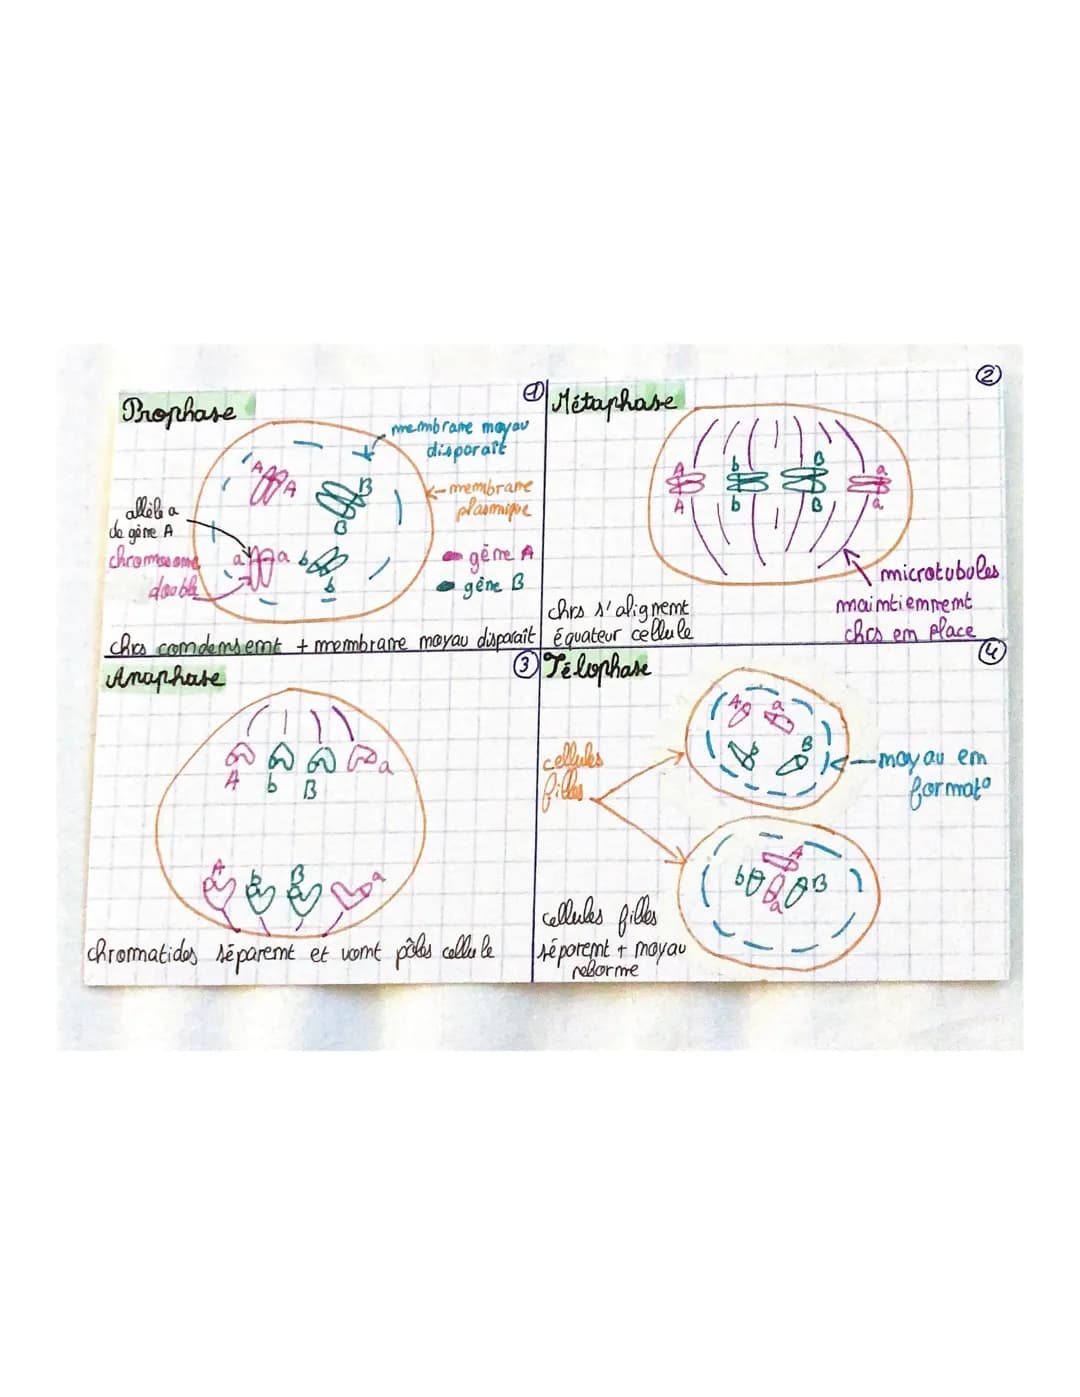 Prophase
①
membrane noyau
disparaît
membrane
plasmique
allèle a
de gène A
chromosome
double
A
A
B
B
a
a
b
b
gène A
gène B
chrs condensent + membrane noyau disparaît
Métaphase
②
A
b
B
a
A
b
B
a
microtubules
maintiennent
chrs en place
chrs s'alignent
équateur cellule
Anaphase
③
A
b
B
a
A
b
B
a
chromatides séparent et vont pôles cellule
Télophase
④
A
a
b
B
cellules
filles
noyau en
format°
A
b
B
a
cellules filles
séparent + noyau
reforme